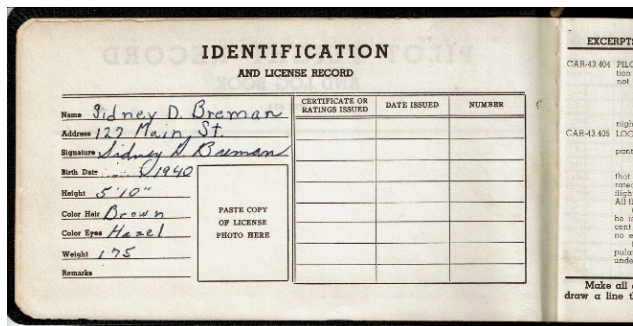 IDENTIFICATION
AND LICENSE RECORD
Name Sidney D. Breman
Address 127 Main St.
Signature Sidney D. Breman
Birth Date 1940
Height 5'10"
Color Hair Brown
Color Eyes Hazel
Weight 175
Remarks
PASTE COPY
OF LICENSE
PHOTO HERE
CERTIFICATE OR
RATINGS ISSUED
DATE ISSUED
NUMBER
EXCERPTS
CAR-43.404 PILO
tion
not
nigh
CAR-43.405 LOG
pant
that
rated
fligh
All ti
he is
cent
no e
pula
unde
Make all
draw a line t